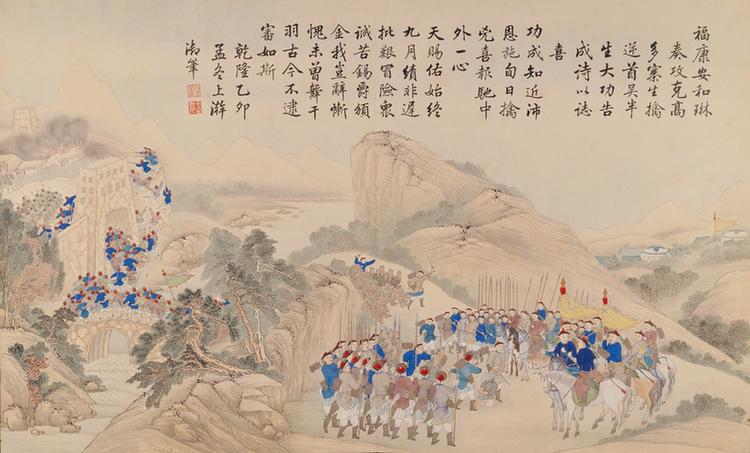 福康安和琳
奏攻克高
多寨生擒
逆首吴半
生大功告
成詩以誌
喜
功成知近沛
恩施旬日擒
兇喜報馳中
外一心
天賜佑始終
九月績非遲
批艱冒險衆
誠苦錫爵頒
金我豈辭慚
愧未曾舞干
羽古今不逮
審如斯
乾隆乙卯
孟冬上澣
御筆